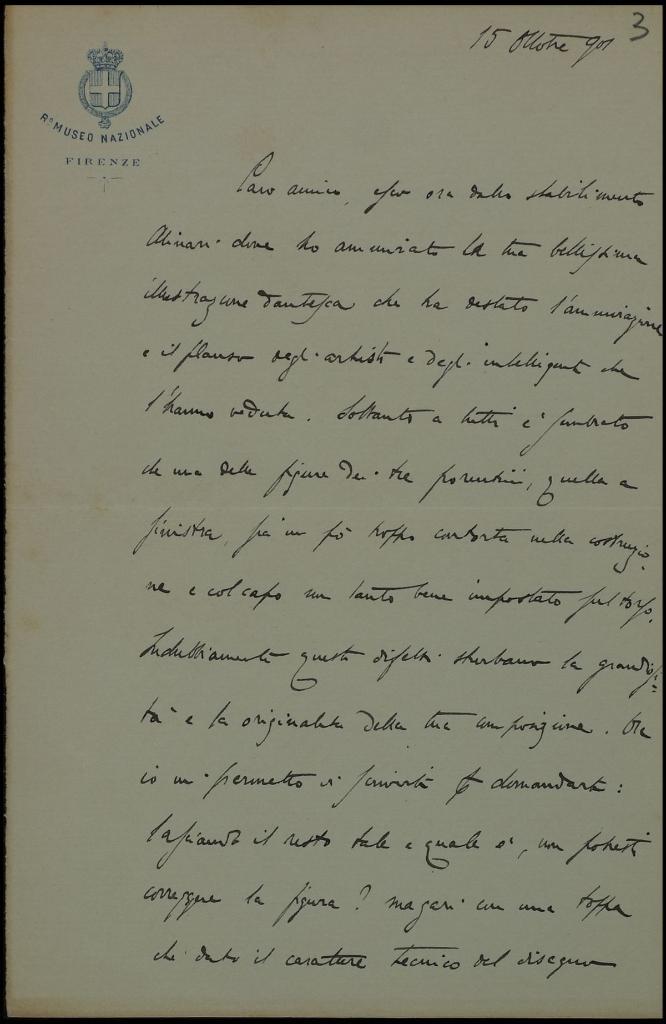 3
15 Ottobre 901
Rº MUSEO NAZIONALE
FIRENZE
Caro amico, esco ora dallo stabilimento
Alinari dove ho ammirato la tua bellissima
illustrazione dantesca che ha destato l'ammirazione
e il plauso degli artisti e degl'intelligenti che
l'hanno veduta. Soltanto a tutti è sembrato
che una delle figure dei tre fiorentini, quella a
sinistra, sia un pò troppo contorta nella costruzio-
ne e col capo non tanto bene impostato sul torso.
Indubbiamente questi difetti sturbano la grandiosi-
tà e la originalità della tua composizione. Ora
io mi permetto di scriverti e domandarti:
lasciando il resto tale e quale è, non potresti
correggere la figura? magari con una toppa
che dato il carattere tecnico del disegno